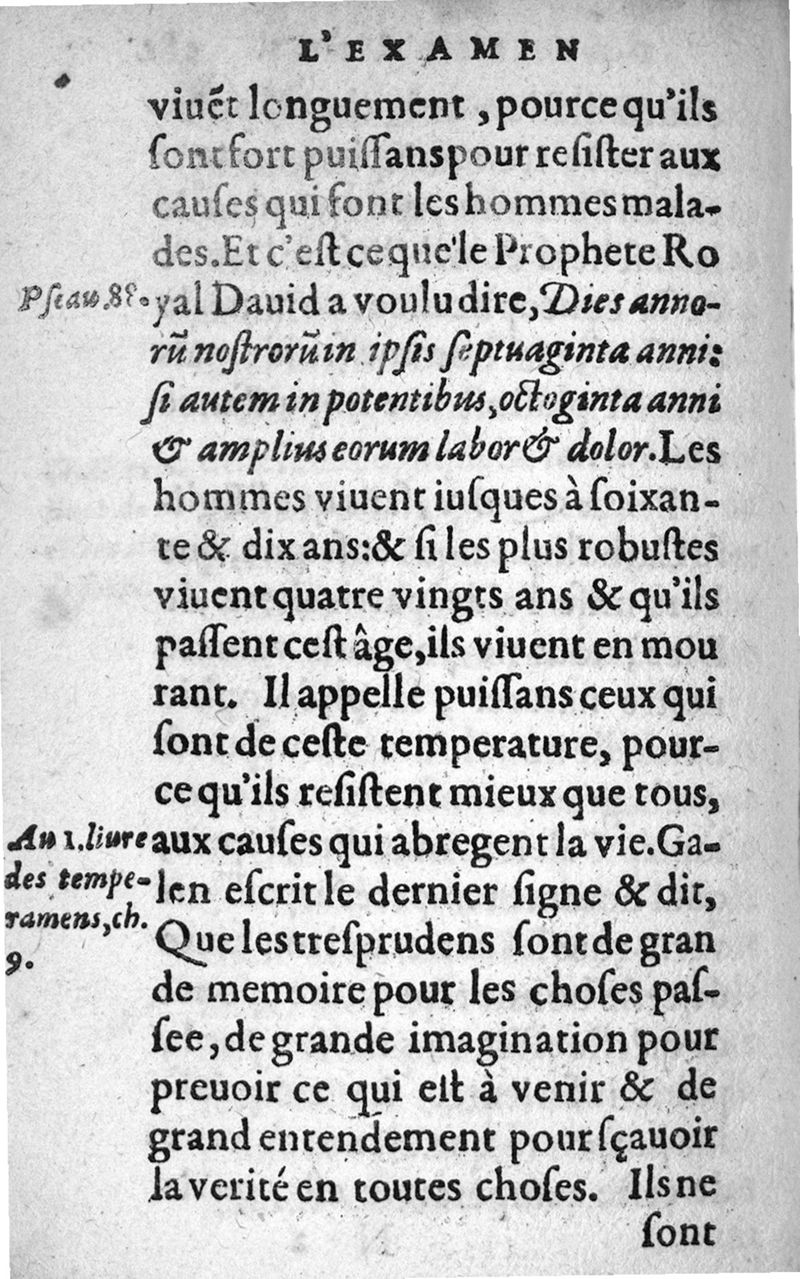 L'EXAMEN
viuẽt longuement, pource qu'ils
ſont fort puiſſans pour reſiſter aux
cauſes qui font les hommes mala-
des. Et c'eſt ce que le Prophete Ro
Pſeau
yal Dauid a voulu dire, Dies anno-
rũ noſtrorũ in ipſis ſeptuaginta anni:
ſi autem in potentibus, octoginta anni
& amplius eorum labor & dolor. Les
hommes viuent iuſques à ſoixan-
te & dix ans: & ſi les plus robuſtes
viuent quatre vingts ans & qu'ils
paſſent ceſt âge, ils viuent en mou
rant. Il appelle puiſſans ceux qui
ſont de ceſte temperature, pour-
ce qu'ils reſiſtent mieux que tous,
aux cauſes qui abregent la vie. Ga-
len eſcrit le dernier ſigne & dit,
Que les treſprudens ſont de gran
de memoire pour les choſes paſ-
ſee, de grande imagination pour
preuoir ce qui eſt à venir & de
grand entendement pour ſçauoir
la verité en toutes choſes. Ils ne
ſont
Au 1. liure
des tempe-
ramens, ch.
9.